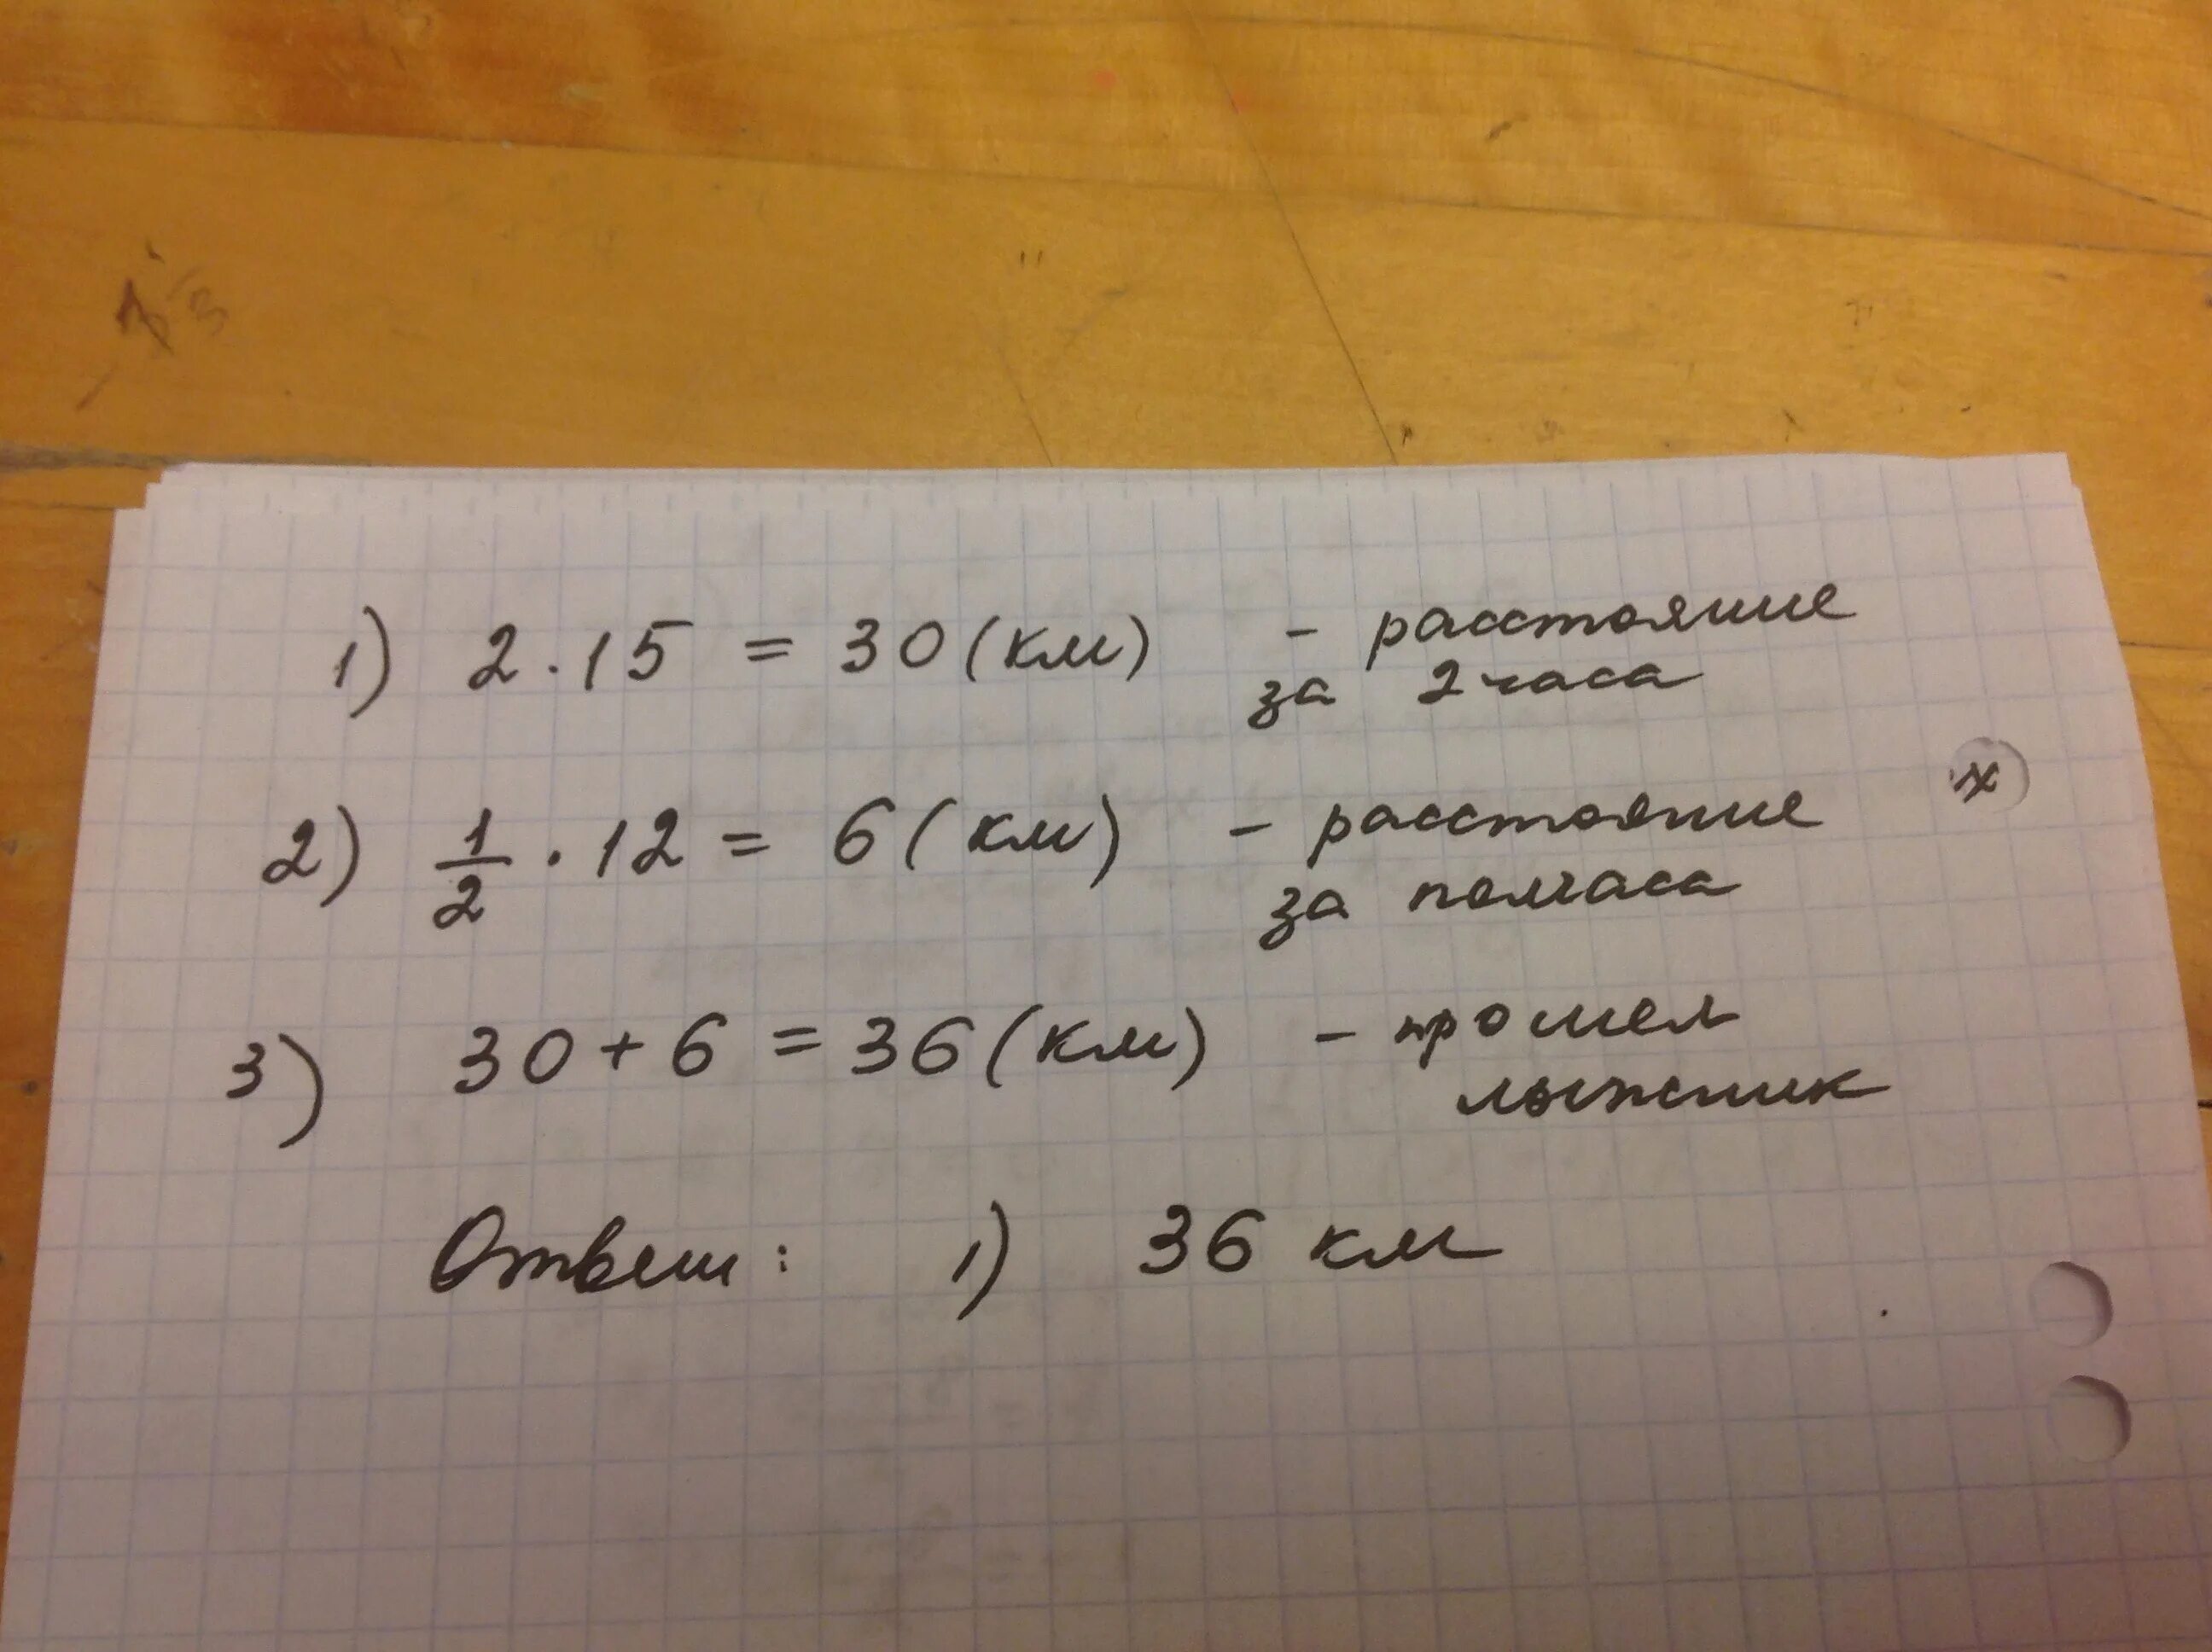 1) 2 · 15 = 30 (км) - расстояние
за 2 часа
2) 1/2 · 12 = 6 (км) - расстояние
за полчаса
х
3) 30 + 6 = 36 (км) - прошел
лыжник
Ответ: 1) 36 км